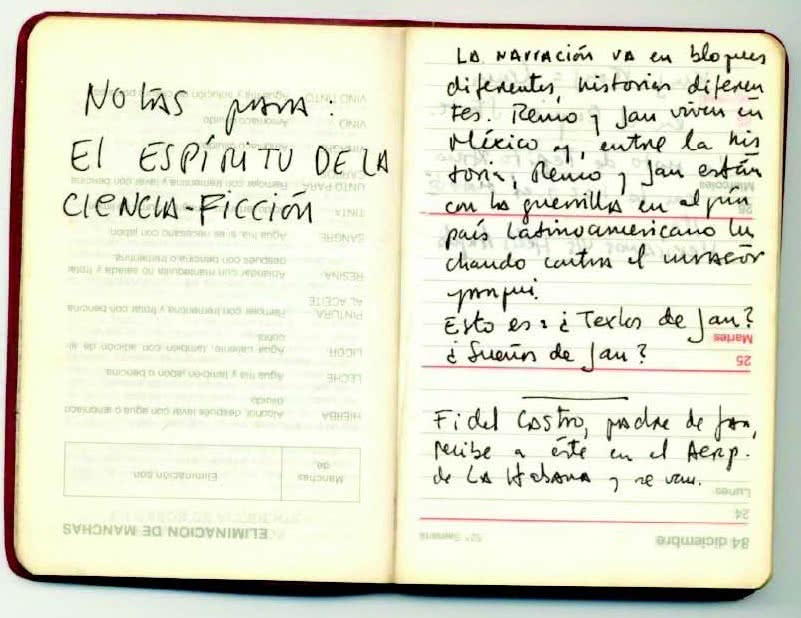 NOTAS PARA:
El ESPÍRITU DE LA
CIENCIA-FICCIÓN
LA NARRACIÓN VA en bloques
diferentes, historias diferen
tes. Remo y Jan viven en
México y, entre la his
toria, Remo y Jan están
con la guerrilla en algún
país Latinoamericano lu
chando contra el invasor
yanqui.
Esto es: ¿Textos de Jan?
¿Sueños de Jan?
Fidel Castro, padre de Jan,
recibe a éste en el Aerp.
de LA Habana y se van.
ELIMINACION DE MANCHAS
Manchas de
Eliminación con
HIERBA Alcohol, después lavar con agua o amoníaco
diluido
LECHE Agua fría y también jabón o bencina
LICOR Agua caliente, también con adición de al-
cohol
PINTURA AL ACEITE Remojar con trementina y frotar con bencina
RESINA Ablandar con mantequilla no salada y frotar
después con bencina o trementina
SANGRE Agua fría, si es necesario con jabón
TINTA
UNTO PARA Remojar con trementina y lavar con bencina
VINO Amoníaco diluido
VINO TINTO
84 diciembre
52ª Semana
24
Lunes
25
Martes
26
Miércoles